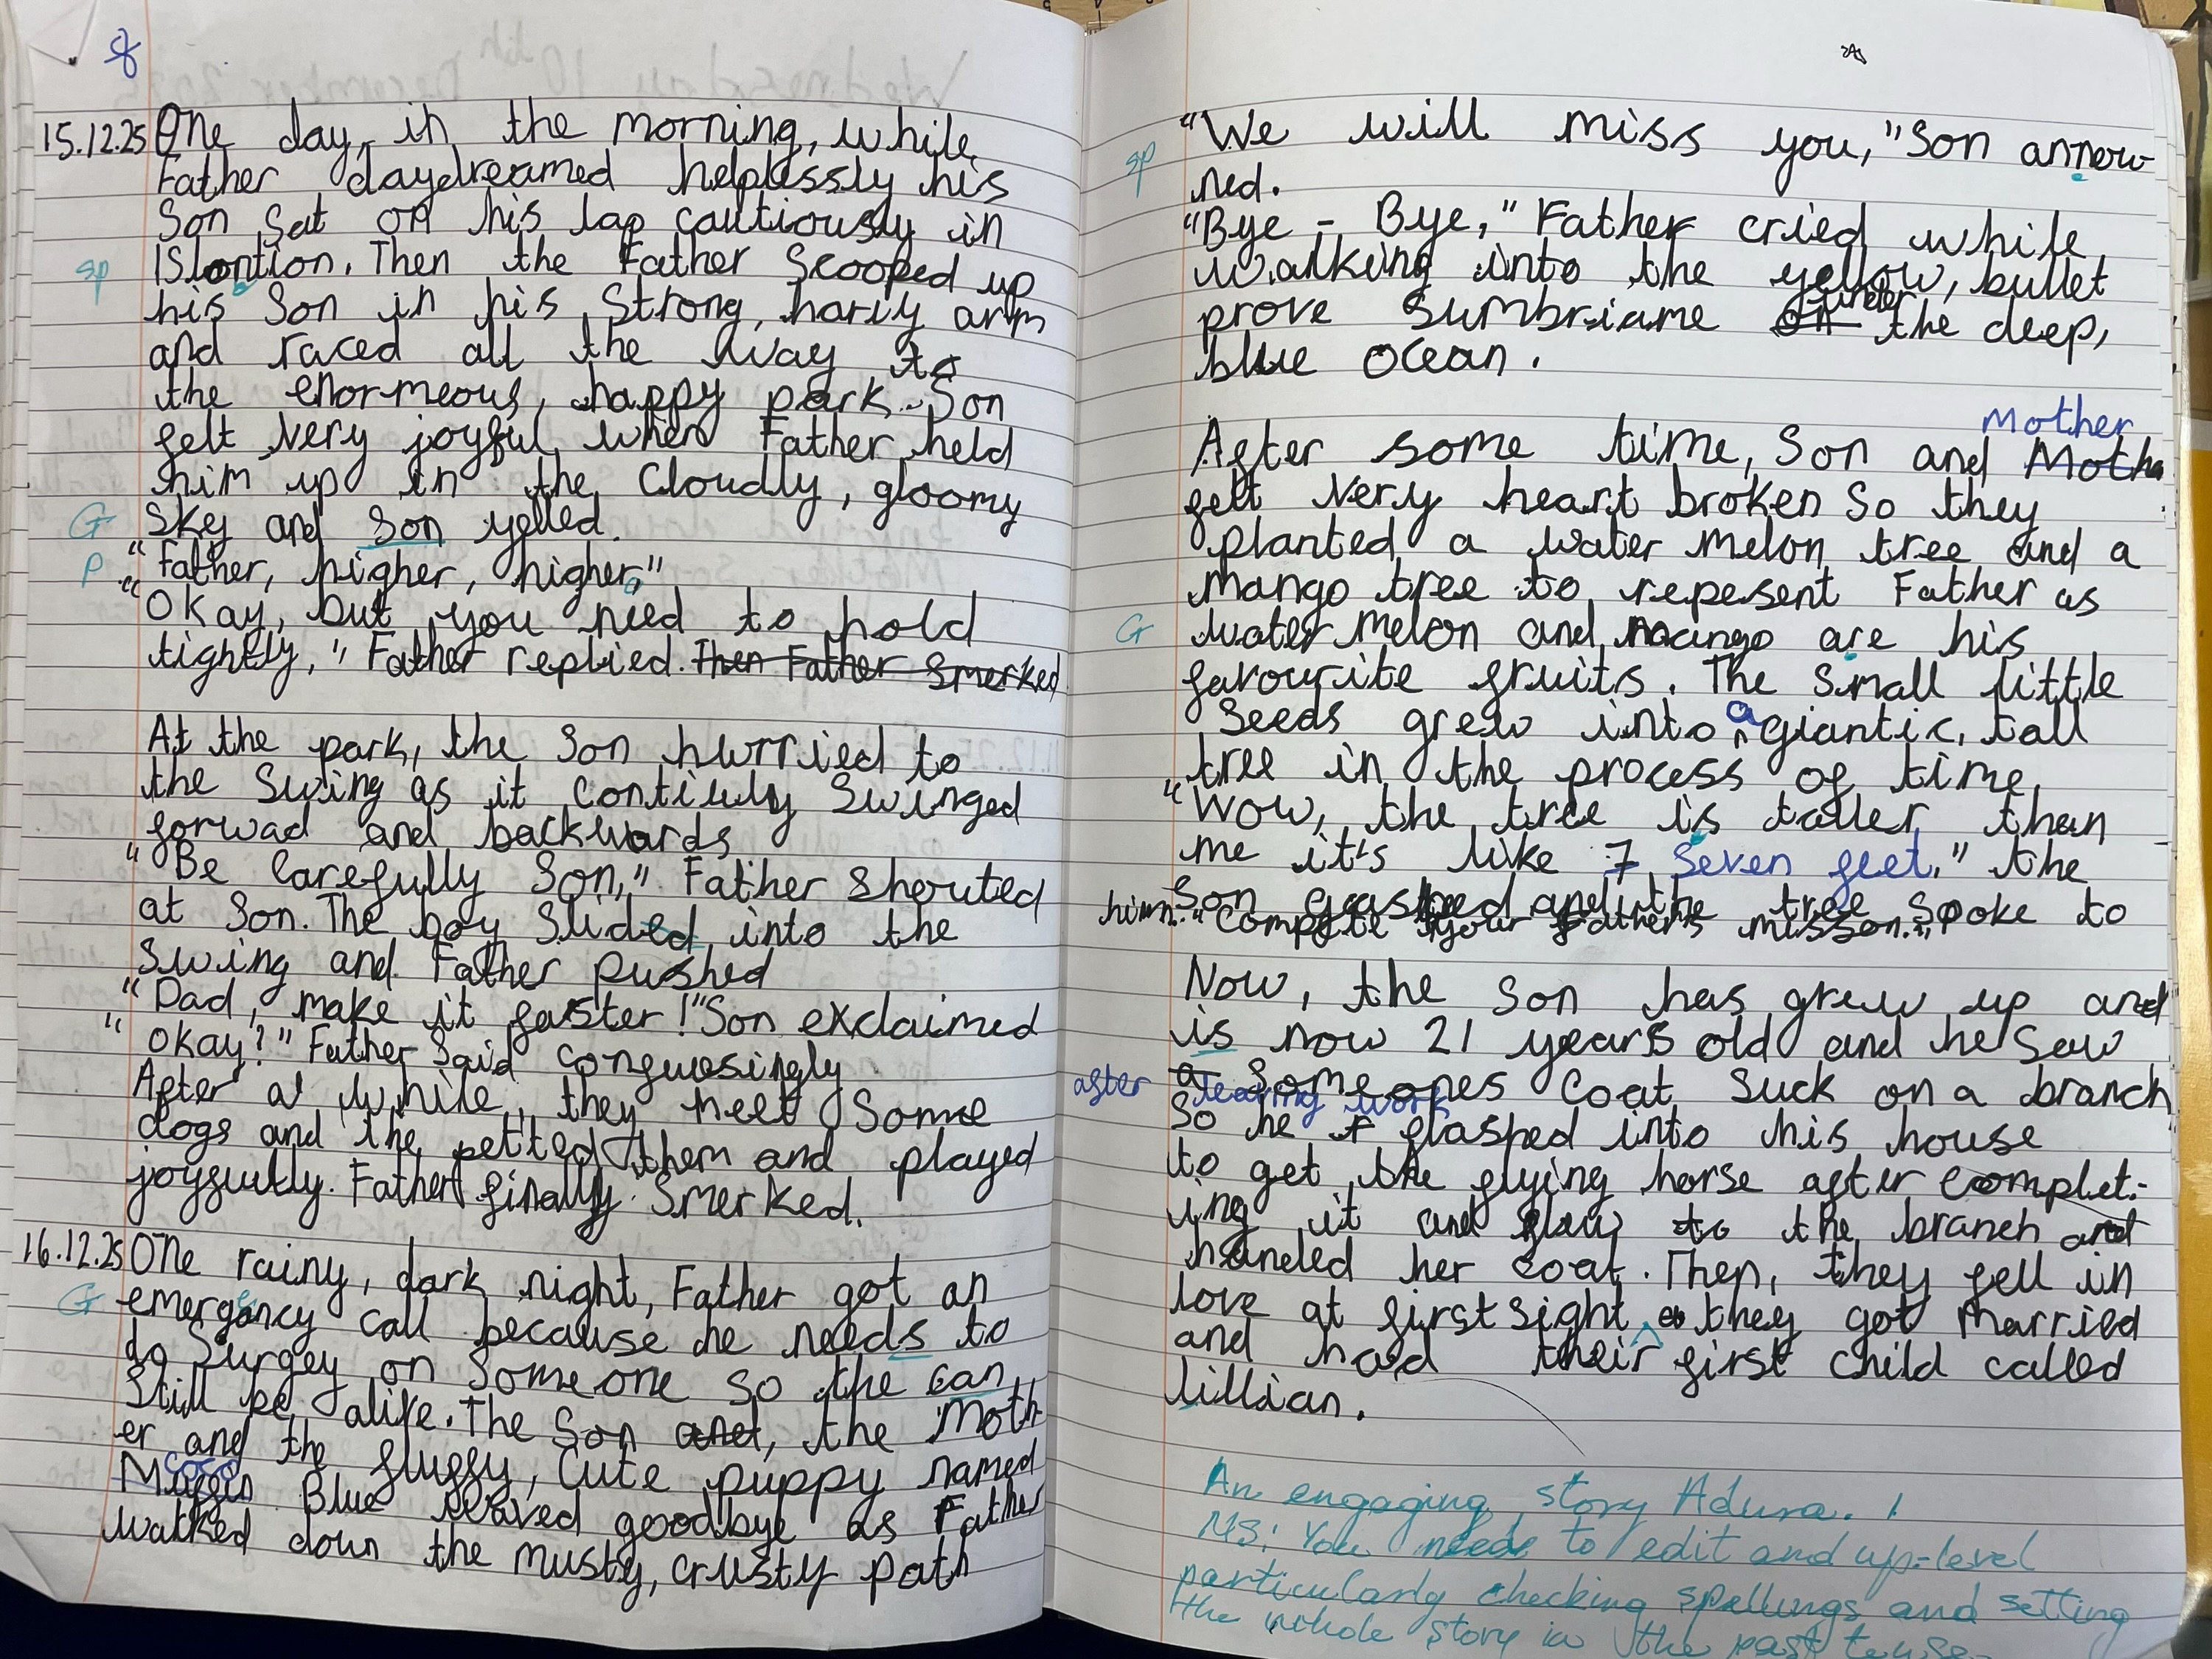 8
15.12.25 One day, in the morning, while
Father daydreamed helplessly his
Son sat on his lap cautiously in
sp Islontion. Then the Father scooped up
his Son in his strong, hariy arm
and raced all the way to
the enormeous, happy park. Son
felt very joyful when Father held
him up in the cloudly, gloomy
G sky and son yelled.
P "Father, higher, higher,"
"Okay, but you need to hold
tightly," Father replied. Then Father smerked
At the park, the son hurried to
the swing as it contiuly swinged
forwad and backwards
"Be carefully Son," Father shouted
at Son. The boy slided into the
swing and Father pushed
"Dad, make it faster!" Son exclaimed
"okay?" Father said confuesingly
After a while, they meet some
dogs and the petted them and played
joyfully. Father finally smerked.
16.12.25 One rainy, dark night, Father got an
G emergency call because he needs to
do surgey on someone so the can
still be alife. The Son and, the Moth
er and the fluffy, cute puppy named
coco
Muffin Blue waved goodbye as Father
walked down the musty, crusty path
"We will miss you," Son annow-
sp
ned.
"Bye - Bye," Father cried while
walking into the yellow, bullet
under
prove sumbriame on the deep,
blue ocean.
Mother
After some time, Son and Mothe
felt very heart broken so they
planted a water melon tree and a
mango tree to repesent Father as
G water melon and mango are his
favourite fruits. The small little
seeds grew into a giantic, tall
tree in the process of time.
"Wow, the tree is taller than
me it's like 7 seven feet." the
son gasped and the tree spoke to
him. "Compete your father's misson."
Now, the son has grew up and
is now 21 years old and he saw
a someones coat suck on a branch
after leaving work
so he f flashed into his house
to get the flying horse after complet-
ing it and flew to the branch and
handed her coat. Then, they fell in
love at first sight they got married
and had their first child called
lillian.
An engaging story Adura. !
NS: You need to edit and up-level
particularly checking spellings and setting
the whole story in the past tense.